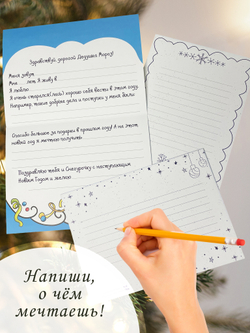 Здравствуй, дорогой Дедушка Мороз!
Меня зовут
Мне лет. Я живу в
Я люблю
Я очень старался(лась) хорошо себя вести в этом году.
Например, такие добрые дела и поступки у меня были:
Спасибо большое за подарки в прошлом году! А на этот
новый год я мечтаю получить
Поздравляю тебя и Снегурочку с наступающим
Новым Годом и желаю
Напиши,
о чём
мечтаешь!